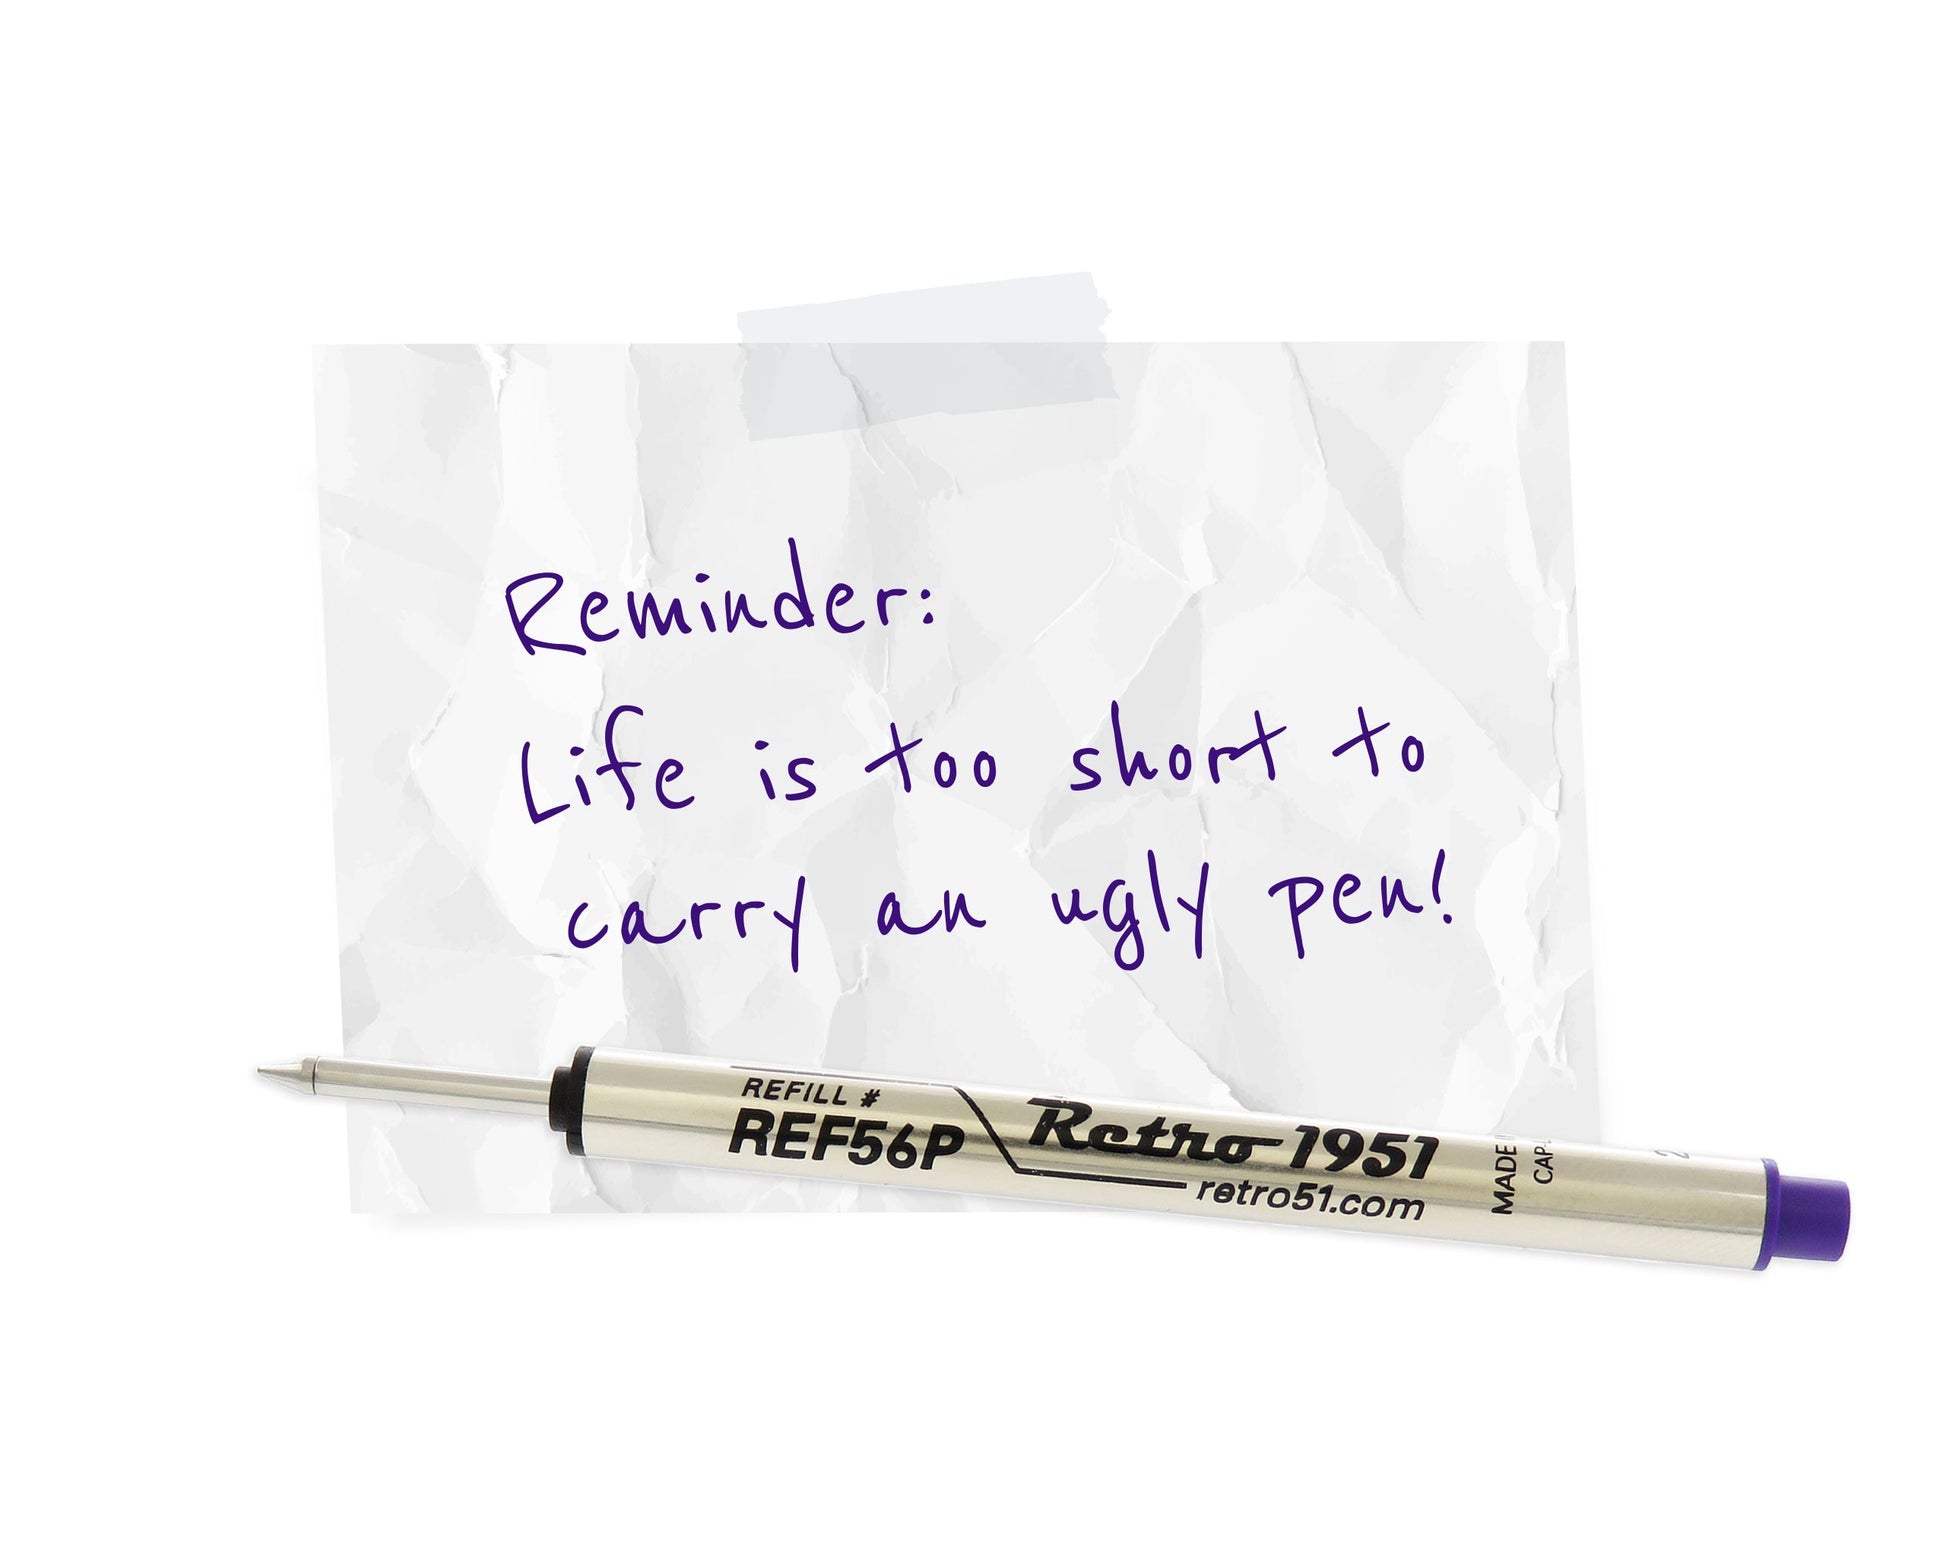 Reminder:
Life is too short to
carry an ugly pen!
REFILL #
REF56P
Retro 1951
retro51.com
MADE
CAP-